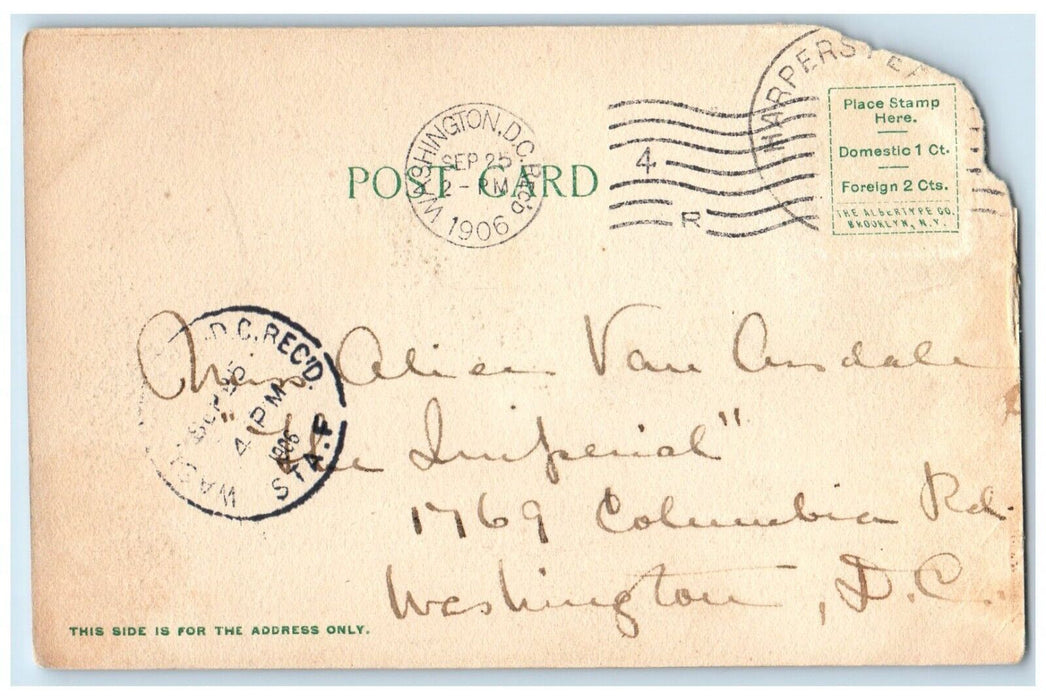 HARPERS FE
Place Stamp
Here.
Domestic 1 Ct.
Foreign 2 Cts.
THE ALBERTYPE CO.
BROOKLYN, N.Y.
4
R
WASHINGTON, D.C. REC'D
SEP 25
2 - PM
1906
POST CARD
WASH D.C. REC'D.
SEP 25
4 PM
1906
STA. F
Miss Alice Van Arsdale
"The Imperial"
1769 Columbia Rd.
Washington, D.C.
THIS SIDE IS FOR THE ADDRESS ONLY.